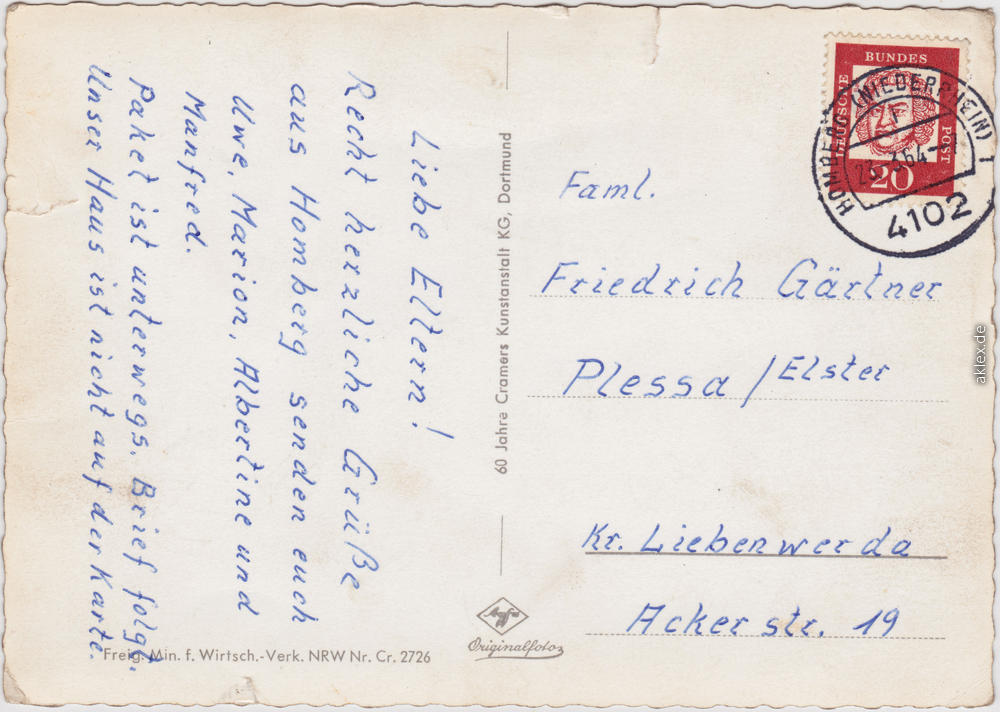 Liebe Eltern!
Recht herzliche Grüße
aus Homberg senden euch
Uwe, Marion, Albertine und
Manfred.
Paket ist unterwegs. Brief folgt.
Unser Haus ist nicht auf der Karte.
Freig. Min. f. Wirtsch.-Verk. NRW Nr. Cr. 2726
60 Jahre Cramers Kunstanstalt KG, Dortmund
Agfa
Originalfoto
DEUTSCHE
BUNDES
POST
20
HOMBERG (NIEDERRHEIN) 1
23.-3.64-
4102
Faml.
Friedrich Gärtner
Plessa / Elster
Kr. Liebenwerda
Ackerstr. 19
aklex.de